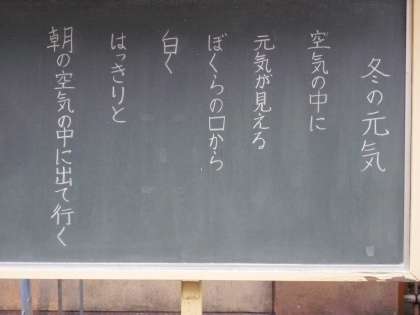 冬の元気
空気の中に
元気が見える
ぼくらの口から
白く
はっきりと
朝の空気の中に出て行く